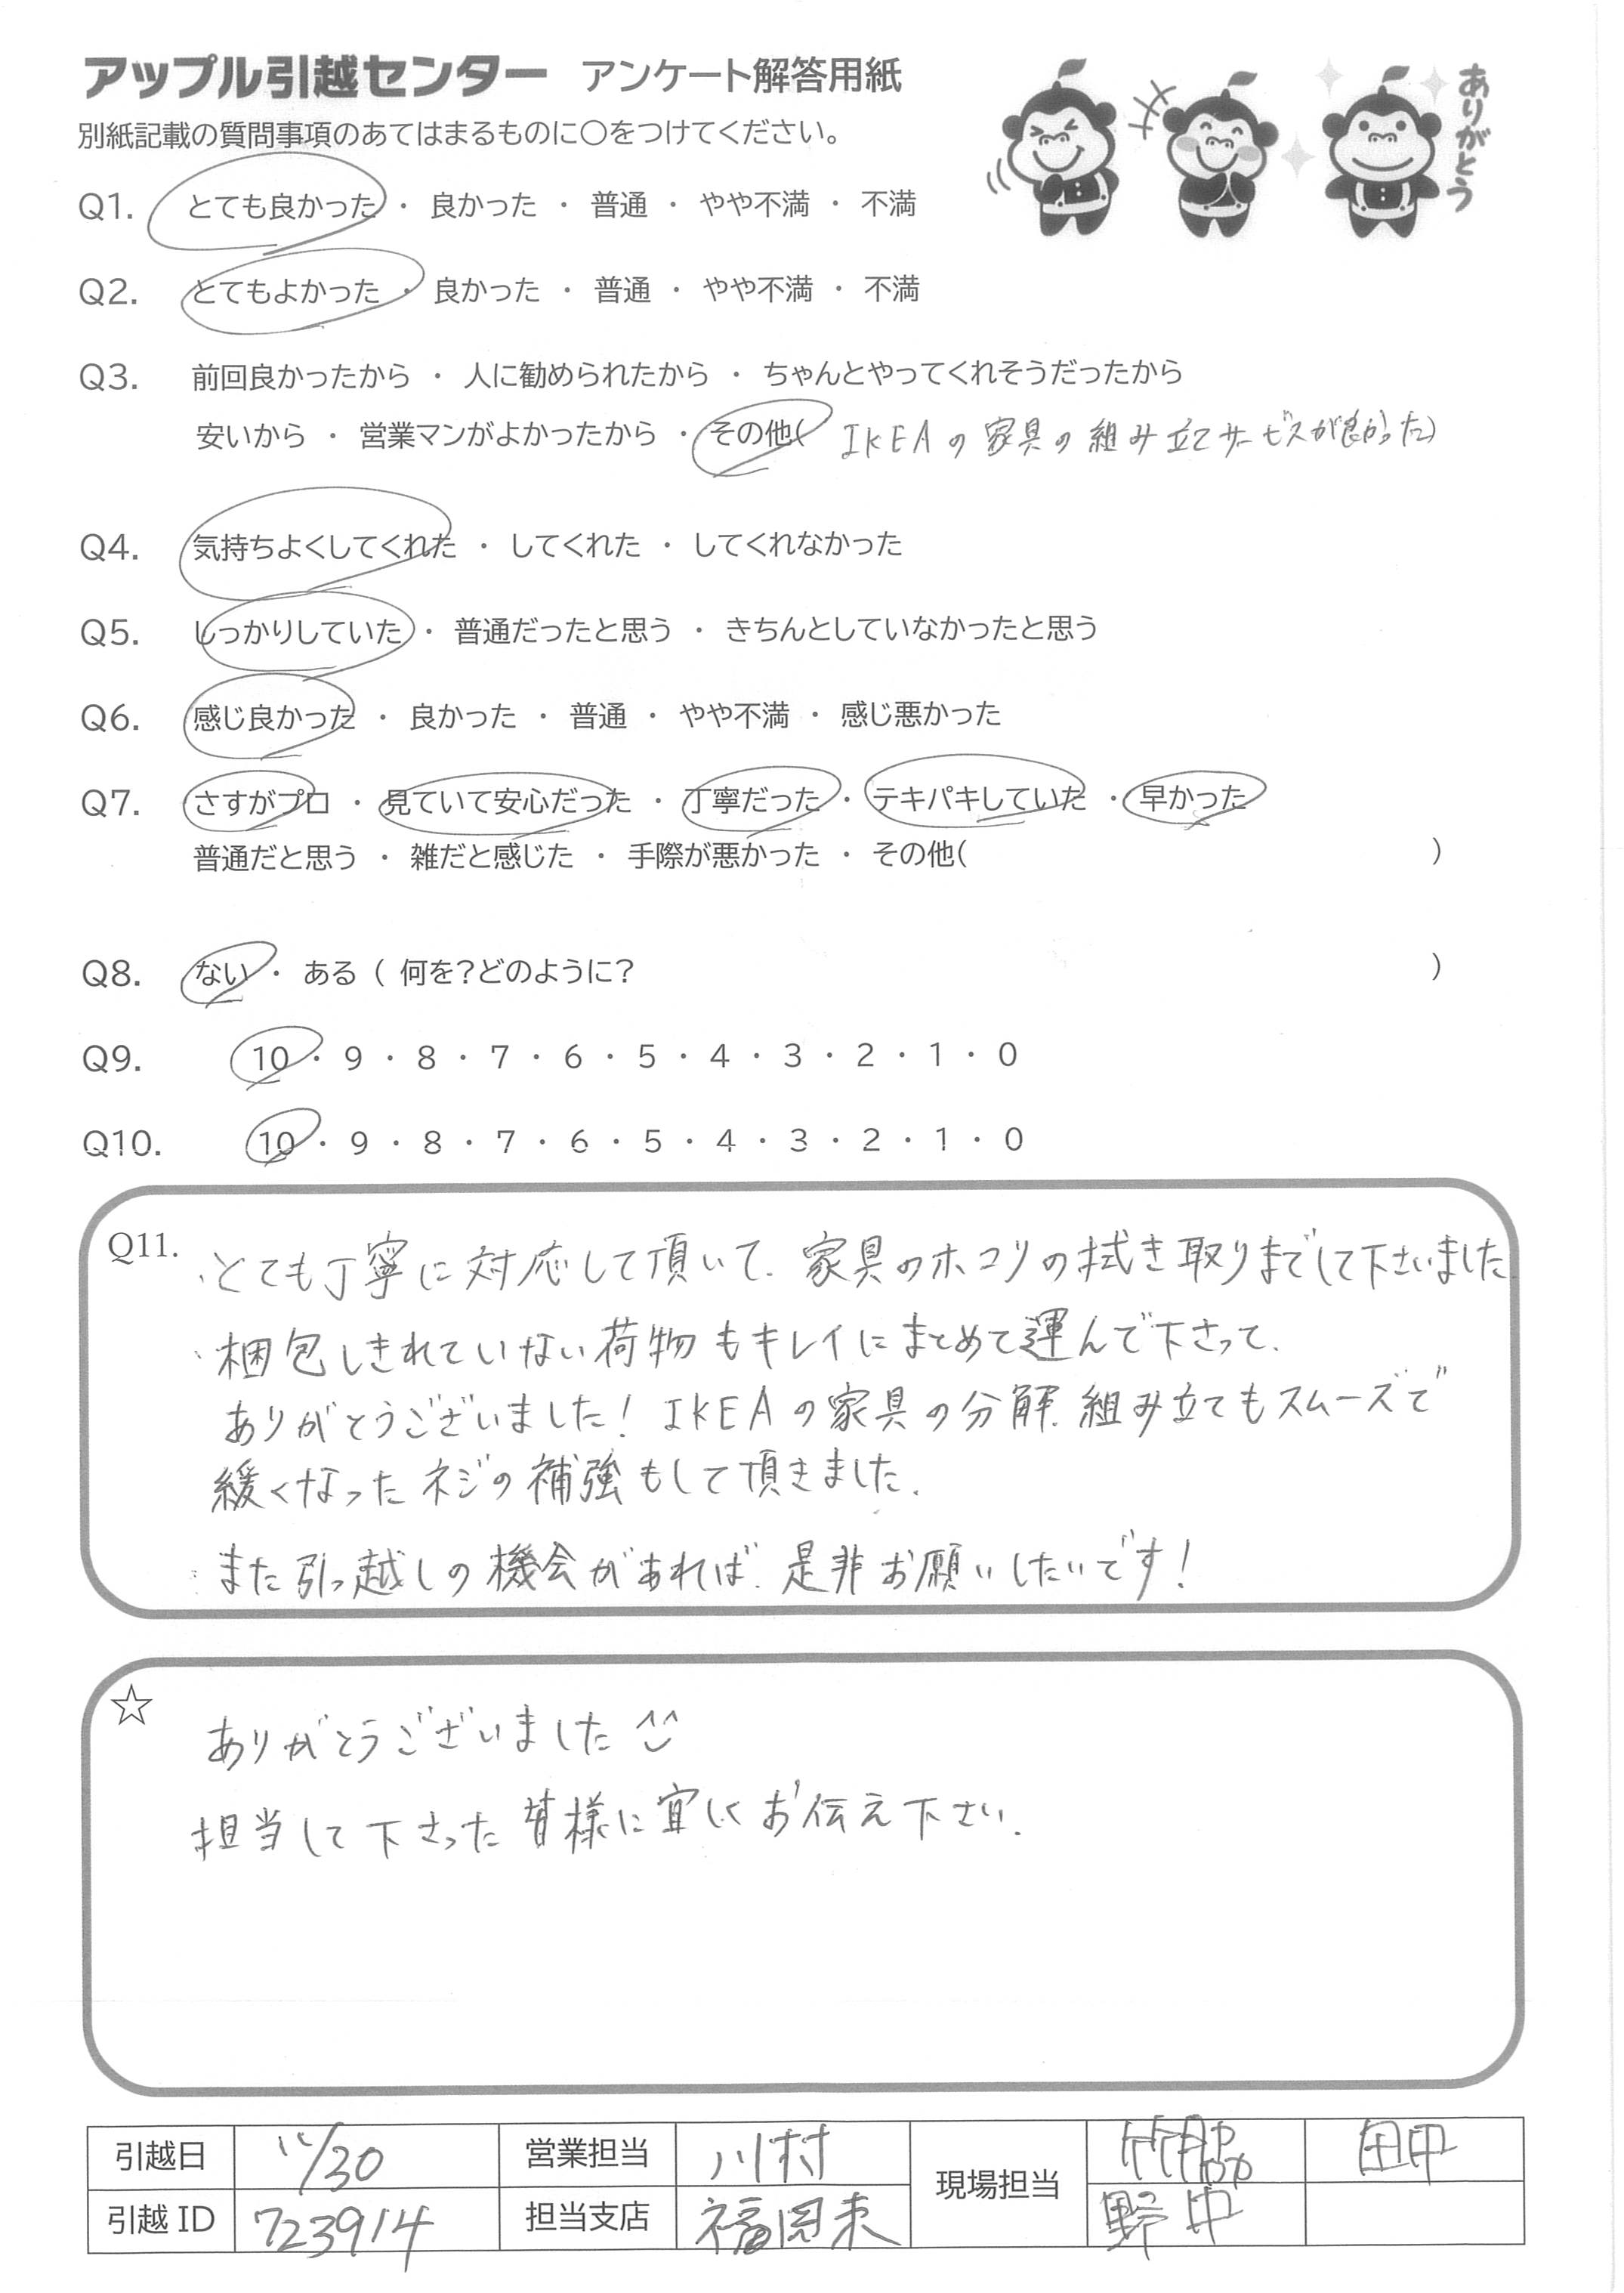 アップル引越センター アンケート解答用紙
ありがとう
別紙記載の質問事項のあてはまるものに〇をつけてください。
Q1. とても良かった ・ 良かった ・ 普通 ・ やや不満 ・ 不満
Q2. とてもよかった ・ 良かった ・ 普通 ・ やや不満 ・ 不満
Q3. 前回良かったから ・ 人に勧められたから ・ ちゃんとやってくれそうだったから
安いから ・ 営業マンがよかったから ・ その他( IKEAの家具の組み立てサービスが良かった)
Q4. 気持ちよくしてくれた ・ してくれた ・ してくれなかった
Q5. しっかりしていた ・ 普通だったと思う ・ きちんとしていなかったと思う
Q6. 感じ良かった ・ 良かった ・ 普通 ・ やや不満 ・ 感じ悪かった
Q7. さすがプロ ・ 見ていて安心だった ・ 丁寧だった ・ テキパキしていた ・ 早かった
普通だと思う ・ 雑だと感じた ・ 手際が悪かった ・ その他( )
Q8. ない ・ ある ( 何を?どのように? )
Q9. 10 ・ 9 ・ 8 ・ 7 ・ 6 ・ 5 ・ 4 ・ 3 ・ 2 ・ 1 ・ 0
Q10. 10 ・ 9 ・ 8 ・ 7 ・ 6 ・ 5 ・ 4 ・ 3 ・ 2 ・ 1 ・ 0
Q11. ・とても丁寧に対応して頂いて、家具のホコリの拭き取りまでして下さいました
・梱包しきれていない荷物もキレイにまとめて運んで下さって、
ありがとうございました! IKEAの家具の分解、組み立てもスムーズで
緩くなったネジの補強もして頂きました。
また引っ越しの機会があれば、是非お願いしたいです!
☆ ありがとうございました
担当して下さった皆様に宜しくお伝え下さい。
引越日 11/30 営業担当 川村 現場担当 竹脇 田中
引越ID 723914 担当支店 福岡東 野中